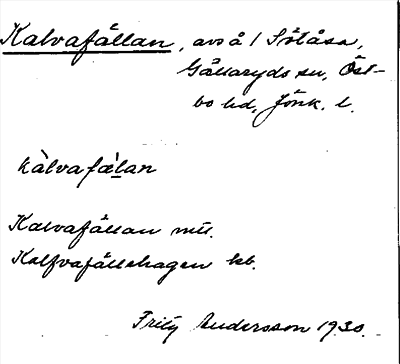 Kalvafållan, avs å 1 Stöåsa,
Gällaryds sn, Öst-
bo hd, Jönk. l.
kàlvafæ̀lan
Kalvafållan mtl.
Kalfvafållehagen kb.
Fritz Andersson 1930.